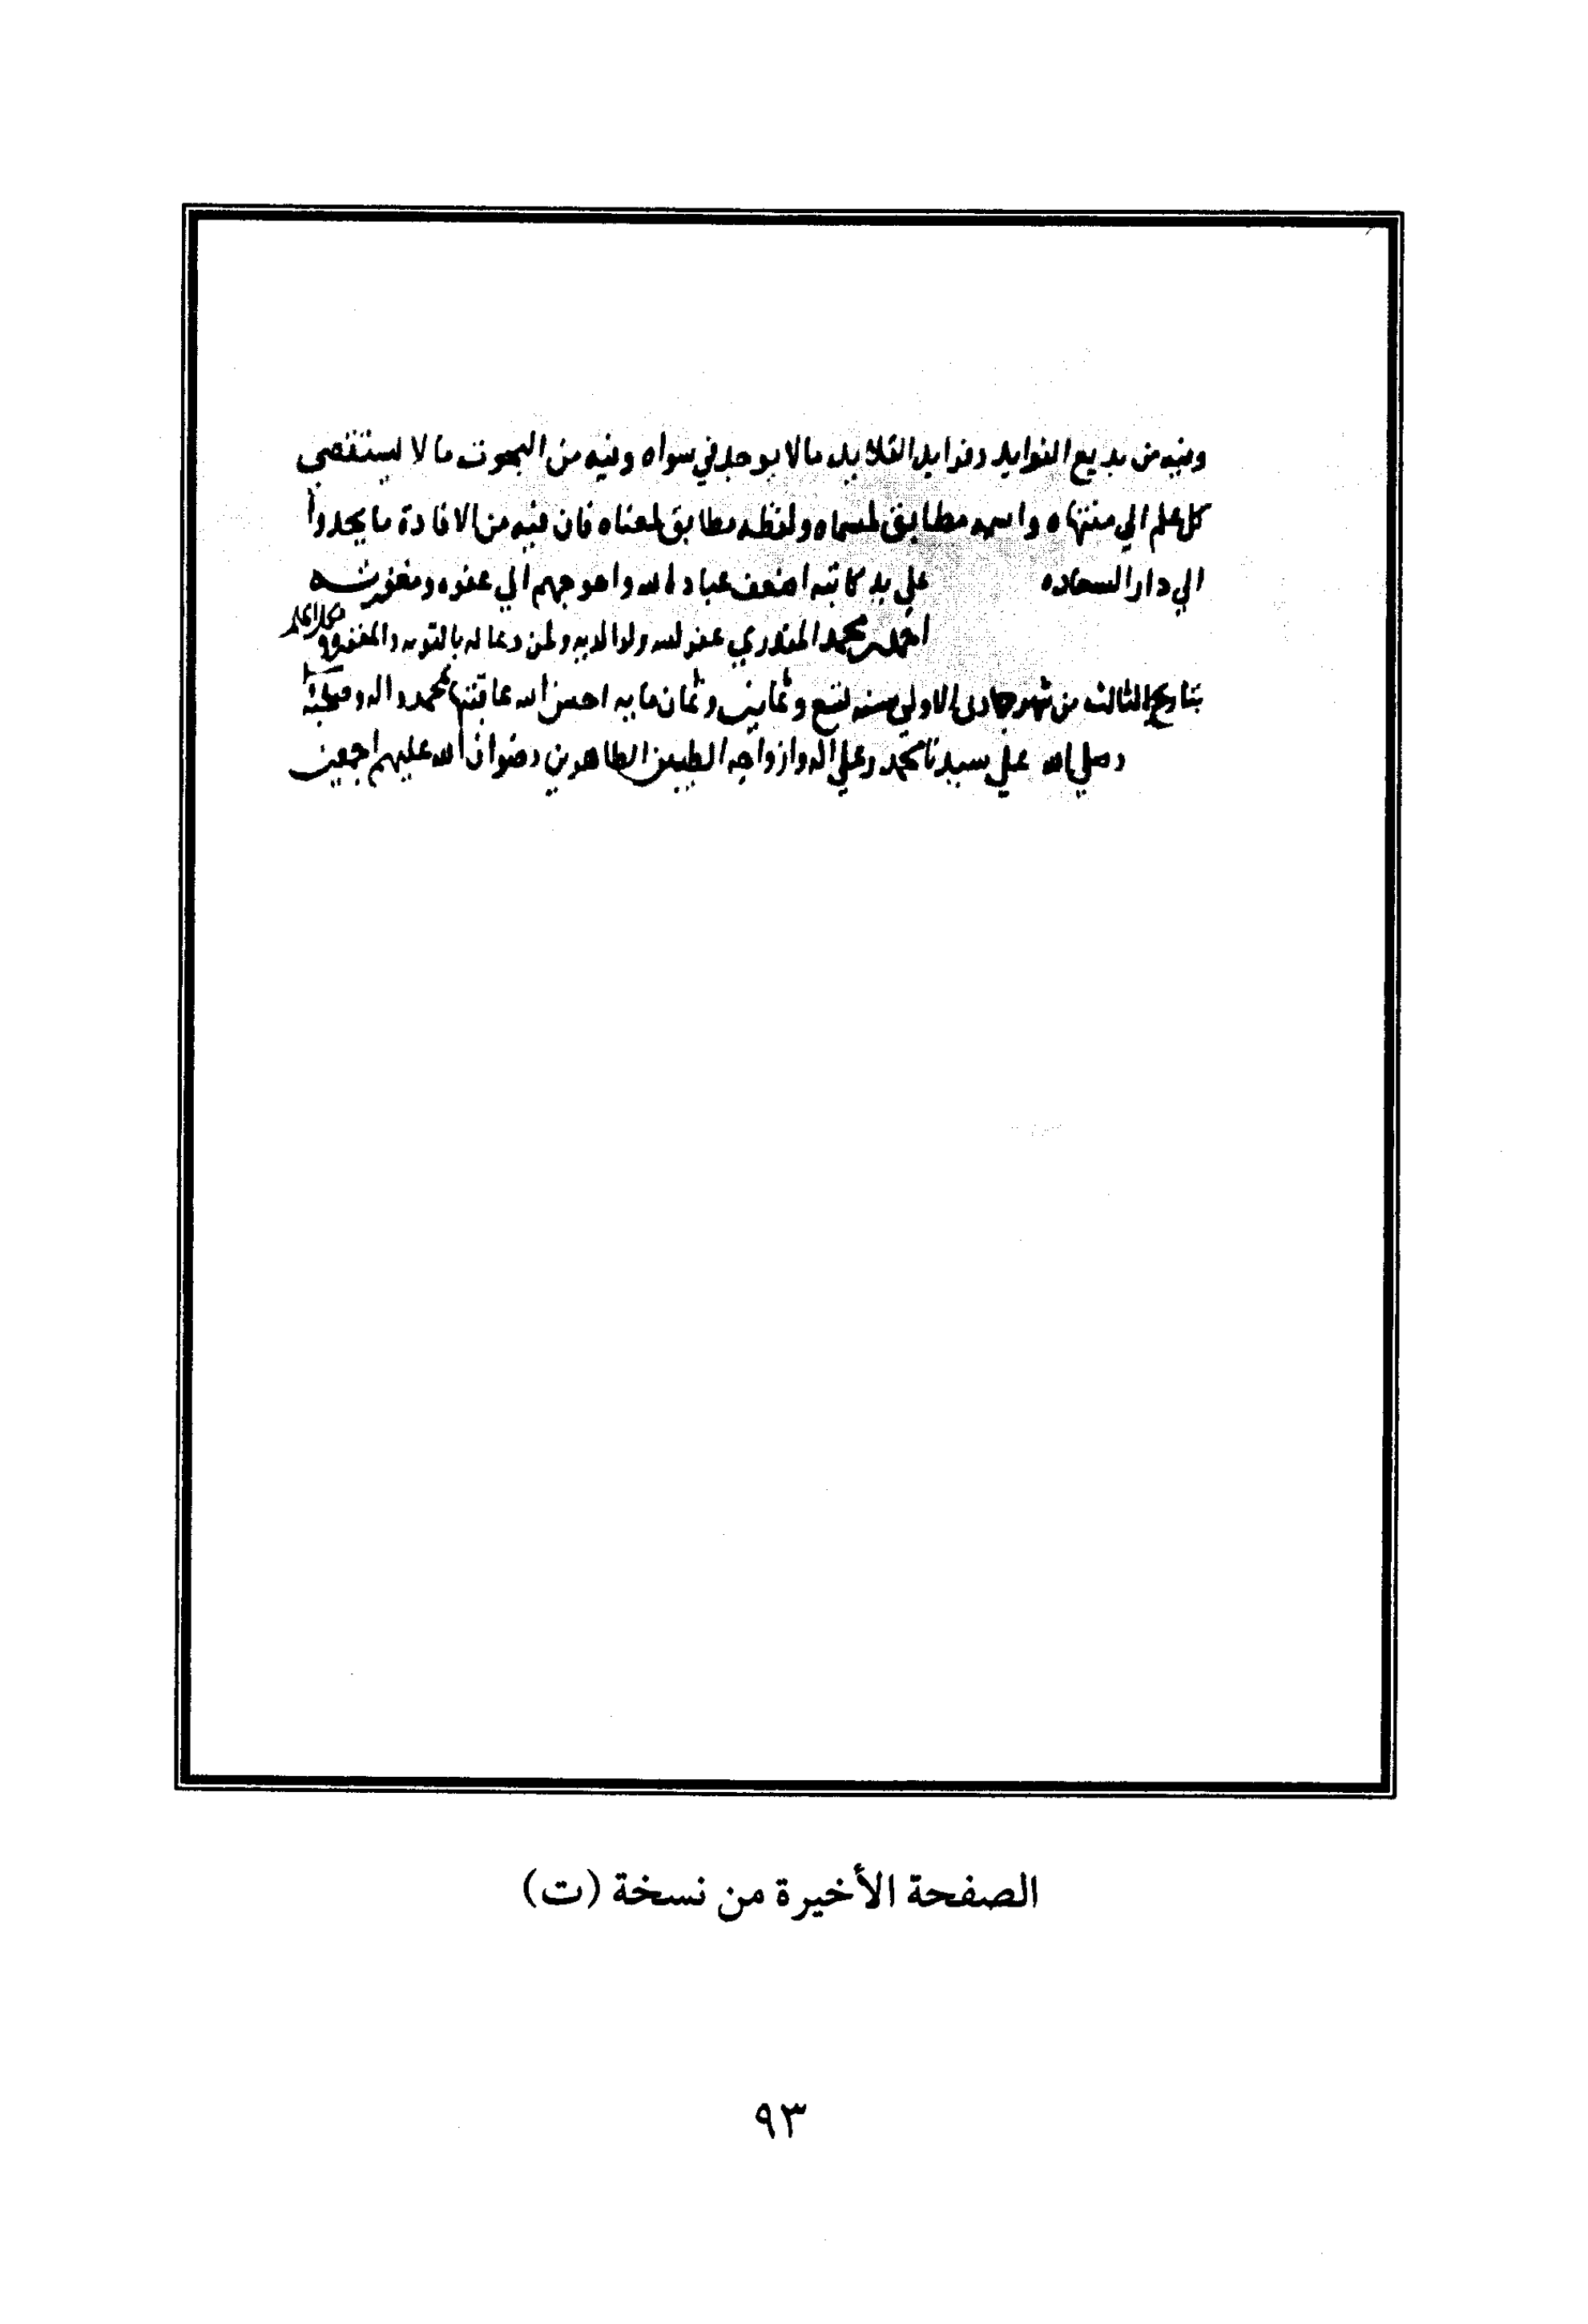 وفيه من بديع الفوايد وفرايد القلايد ما لا يوجد في سواه وفيه من البحوث ما لا يستقصى
كل علم الي منتهاه واسمه مطابق لمسماه ولفظه مطابق لمعناه فان فيه من الافادة ما يحدوا
الي دار السعاده علي يد كاتبه اضعف عباد الله واحوجهم الي عفوه ومغفرته
احمد بن محمد عفر له ولوالديه ولمن دعا له بالتوبه والمغفره
بتاريخ الثالث من شهر جمادى الاولي سنه تسع وثمانين وثمان مايه احسن الله عاقبتها بمحمد واله وصحبه
وصلي الله علي سيدنا محمد وعلي اله وازواجه الطيبين الطاهرين رضوان الله عليهم اجمعين
الصفحة الأخيرة من نسخة (ت)
٩٣